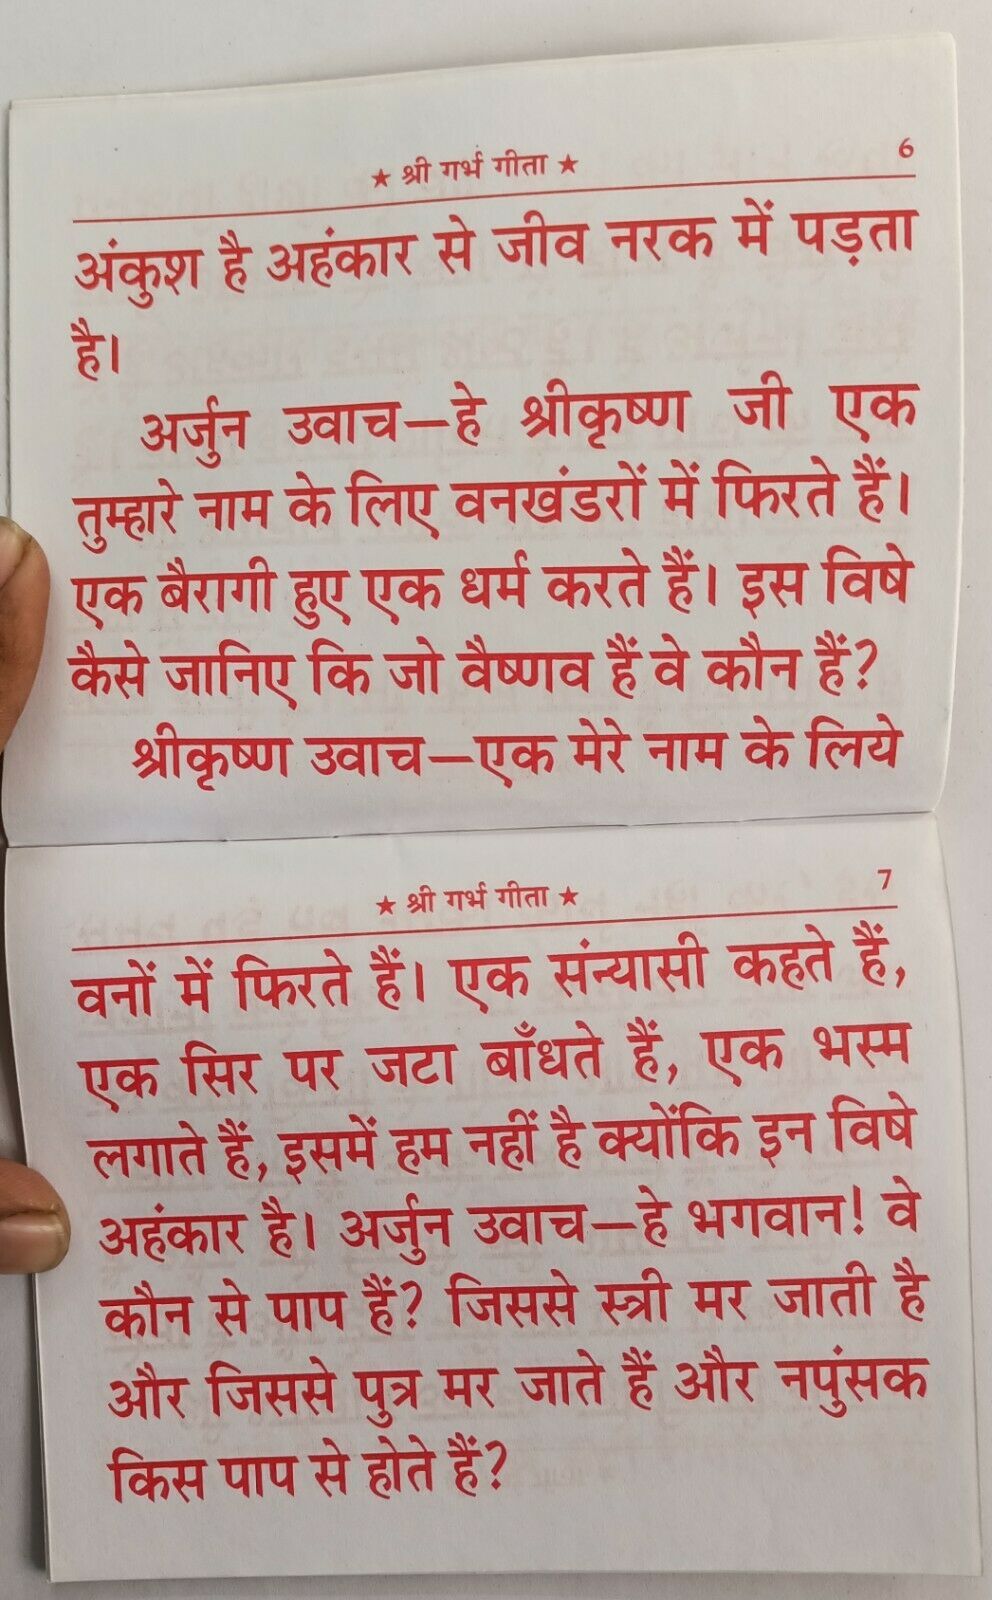 ★ श्री गर्भ गीता ★ 6
अंकुश है अहंकार से जीव नरक में पड़ता
है।
अर्जुन उवाच—हे श्रीकृष्ण जी एक
तुम्हारे नाम के लिए वनखंडरों में फिरते हैं।
एक बैरागी हुए एक धर्म करते हैं। इस विषे
कैसे जानिए कि जो वैष्णव हैं वे कौन हैं?
श्रीकृष्ण उवाच—एक मेरे नाम के लिये
★ श्री गर्भ गीता ★ 7
वनों में फिरते हैं। एक संन्यासी कहते हैं,
एक सिर पर जटा बाँधते हैं, एक भस्म
लगाते हैं, इसमें हम नहीं है क्योंकि इन विषे
अहंकार है। अर्जुन उवाच—हे भगवान! वे
कौन से पाप हैं? जिससे स्त्री मर जाती है
और जिससे पुत्र मर जाते हैं और नपुंसक
किस पाप से होते हैं?